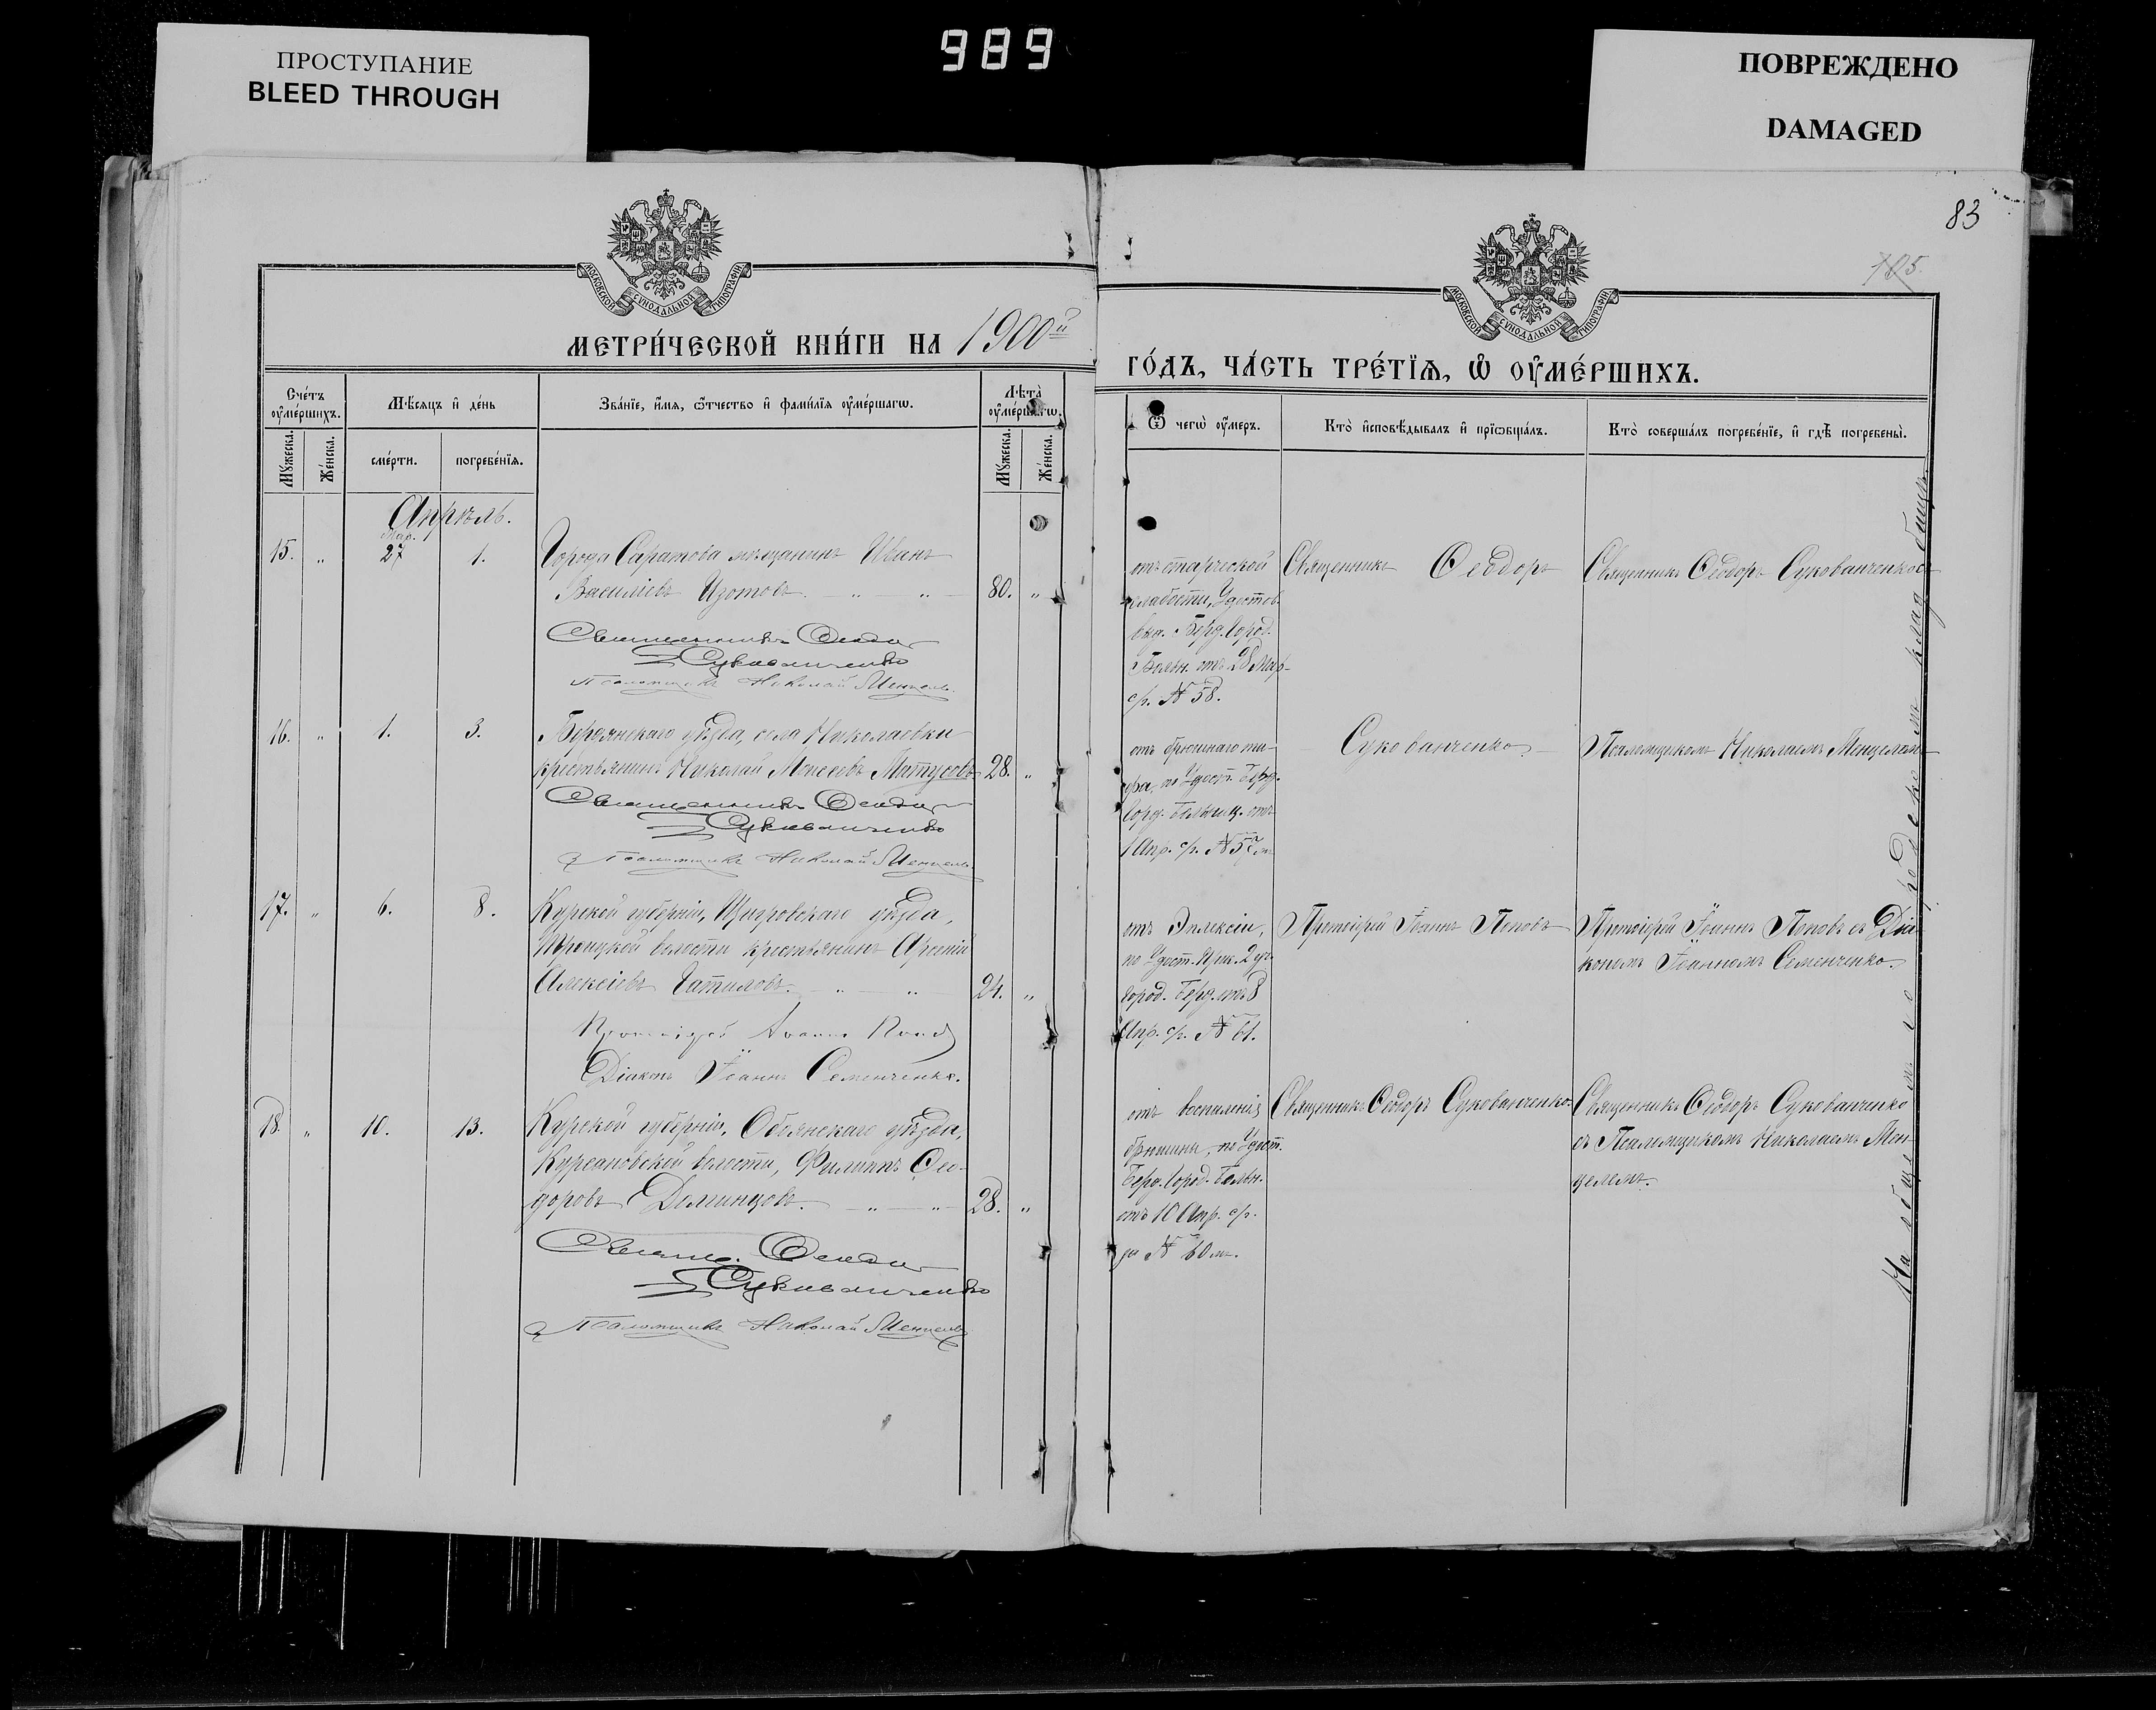 989
ПРОСТУПАНИЕ
BLEED THROUGH
ПОВРЕЖДЕНО
DAMAGED
83
185.
МОСКОВСКОЙ СѴНОДАЛЬНОЙ ТИПОГРАФІИ
МОСКОВСКОЙ СѴНОДАЛЬНОЙ ТИПОГРАФІИ
МЕТРИ́ЧЕСКОЙ КНИ́ГИ НА 1900й
ГО́ДЪ, ЧА́СТЬ ТРЕ́ТЇѦ, Ѡ҆ ОУ҆МЕ́РШИХЪ.
Сче́тъ оу҆ме́ршихъ.
Мꙋ́жеска.
Же́нска.
Мѣ́сяцъ и҆ де́нь
сме́рти.
погребе́нїѧ.
Зва́нїе, и҆́мѧ, ѻ҆́тчество и҆ фами́лїѧ оу҆ме́ршагѡ.
Лѣ́та оу҆ме́ршагѡ.
Мꙋ́жеска.
Же́нска.
Ѿ чегѡ̀ оу҆́меръ.
Кто̀ и҆сповѣ́дывалъ и҆ прїѡбща́лъ.
Кто̀ соверша́лъ погребе́нїе, и҆ гдѣ̀ погребены̀.
Апрѣль.
15. „ Мар. 27 1. Города Саратова мѣщанинъ Иванъ
Василіевъ Изотовъ. — „ — „ — 80. „
Священникъ Ѳеодоръ
Сукованченко
Псаломщикъ Николай Менцель.
отъ старческой
слабости, Удостов.
выд. Берд. Город.
Больн. отъ 28 Мар.
с/г. № 58.
Священникъ Ѳеодоръ
Священникъ Ѳеодоръ Сукованченко съ
16. „ 1. 3. Бердянскаго уѣзда, села Николаевки
крестьянинъ Николай Моисеевъ Матусовъ 28. „
Священникъ Ѳеодоръ
Сукованченко
Псаломщикъ Николай Менцель.
отъ брюшнаго ти-
фа, по Удост. Берд.
Город. Больниц. отъ
1 Апр. с/г.
Сукованченко
Псаломщикомъ Николаемъ Менцелемъ
17. „ 6. 8. Курской губерніи, Щигровскаго уѣзда,
Троицкой волости крестьянинъ
Алексіевъ — „ — „ — 24. „
Протоіерей Іоаннъ Поповъ
Діаконъ Іоаннъ Семенченко.
отъ
по Удост. 2 уч.
город. Берд. отъ 8
Апр. с/г. № 61.
Протоіерей Іоаннъ Поповъ
Протоіерей Іоаннъ Поповъ съ Діа-
кономъ Іоанномъ Семенченко.
18. „ 10. 13. Курской губерніи, Обоянскаго уѣзда,
Курсановской волости, Филиппъ Ѳео-
доровъ Доминцовъ. — „ — „ — 28. „
Священ. Ѳеодоръ
Сукованченко
Псаломщикъ Николай Менцель
отъ воспаленія
брюшины, по Удост.
Берд. Город. Больн.
отъ 10 Апр. с/г.
за № 60м.
Священникъ Ѳеодоръ Сукованченко.
Священникъ Ѳеодоръ Сукованченко
съ Псаломщикомъ Николаемъ Мен-
целемъ.
На общемъ городскомъ кладбищѣ.